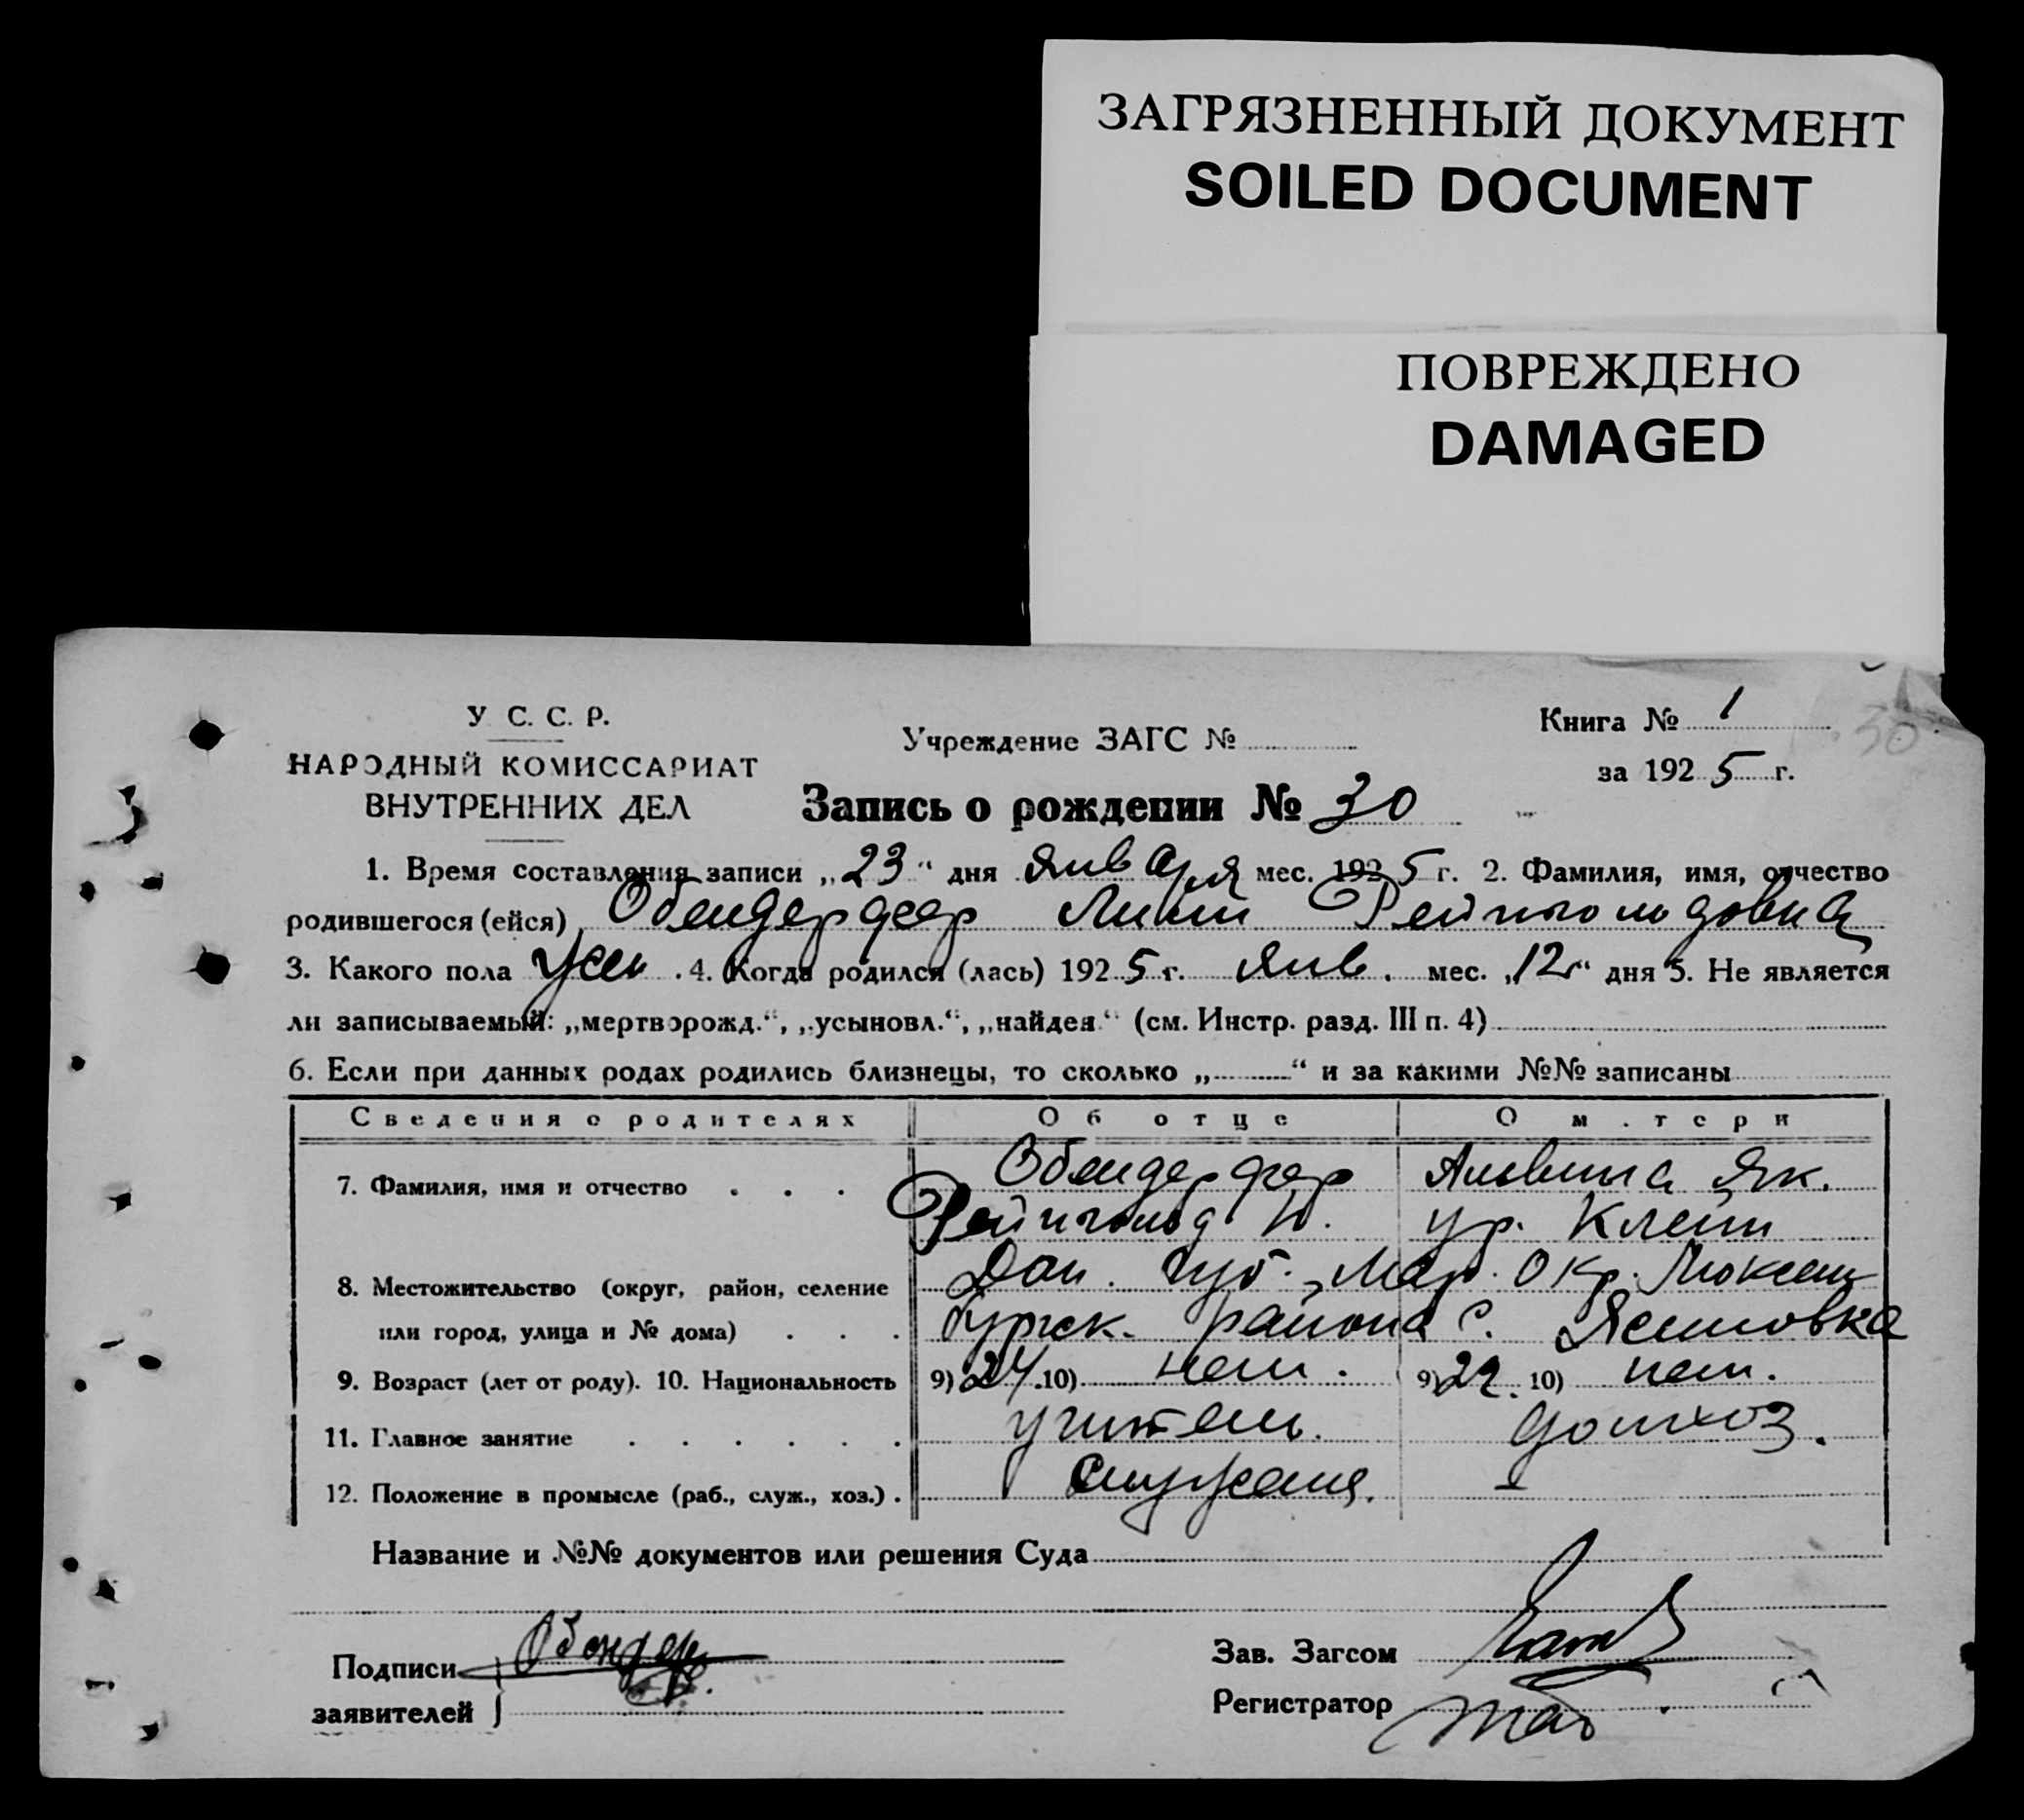 ЗАГРЯЗНЕННЫЙ ДОКУМЕНТ
SOILED DOCUMENT
ПОВРЕЖДЕНО
DAMAGED
У С. С. Р.
НАРОДНЫЙ КОМИССАРИАТ
ВНУТРЕННИХ ДЕЛ
Учреждение ЗАГС №
Книга № 1
30
за 1925 г.
Запись о рождении № 30
1. Время составления записи „23“ дня января мес. 1925 г. 2. Фамилия, имя, отчество
родившегося (ейся) Обендерфер Рейнгольдовна
3. Какого пола жен. 4. Когда родился (лась) 1925 г. янв. мес. „12“ дня 5. Не является
ли записываемый: „мертворожд.“, „усыновл.“, „найден“ (см. Инстр. разд. III п. 4)
6. Если при данных родах родились близнецы, то сколько „ “ и за какими №№ записаны
Сведения о родителях Об отце О м.тери
7. Фамилия, имя и отчество . . . Обендерфер Альвина Як.
Рейнгольд ур. Клейн
8. Местожительство (округ, район, селение Дон. губ. Мар. Окр. Люксем
или город, улица и № дома) . . . бургск. района с. Ясиновка
9. Возраст (лет от роду). 10. Национальность 9) 24. 10) нем. 9) 10) нем.
11. Главное занятие . . . . . . учитель. домхоз.
12. Положение в промысле (раб., служ., хоз.) . служащ. –
Название и №№ документов или решения Суда
Подписи
заявителей
Зав. Загсом
Регистратор